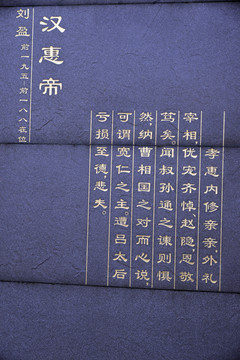 汉惠帝
刘盈 前一九五—前一八八在位
孝惠内修亲亲,外礼
宰相,优宠齐悼、赵隐,恩敬
笃矣。闻叔孙通之谏则惧
然,纳曹相国之对而心说,
可谓宽仁之主。遭吕太后
亏损至德,悲夫。